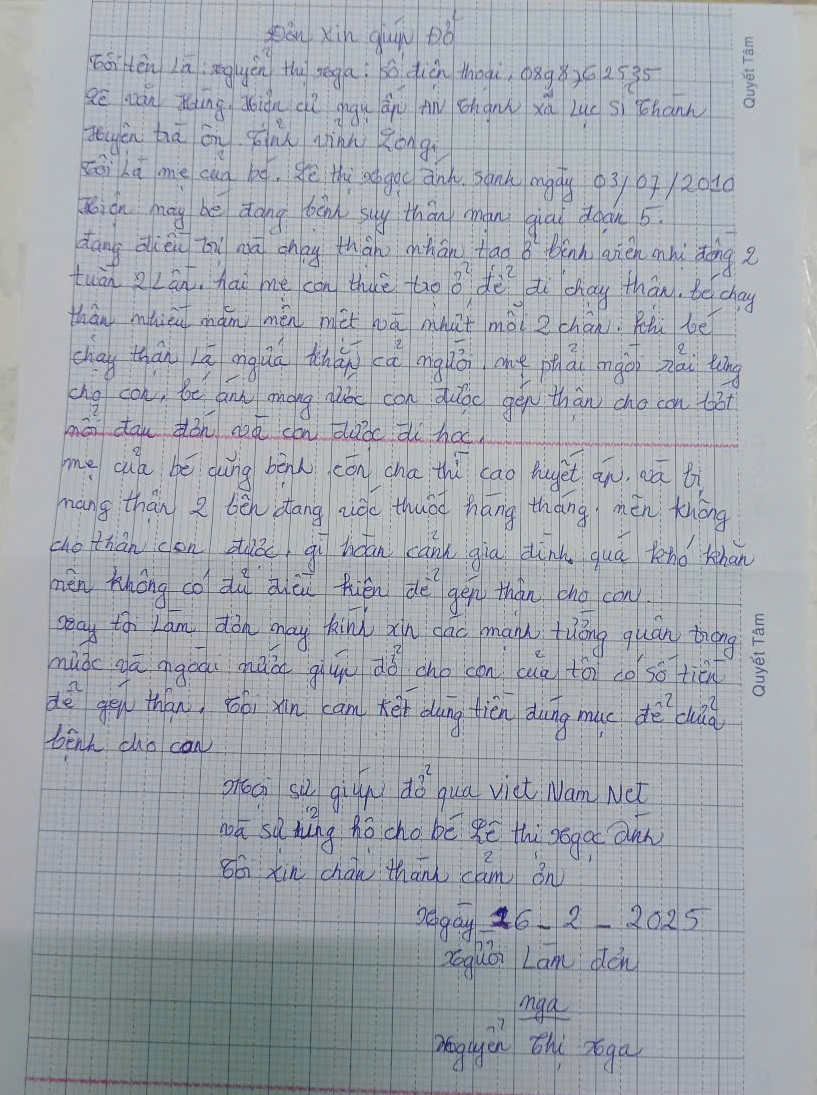 Đơn xin giúp Đỡ
Tôi tên Là: Nguyễn thị Nga: Số điện thoại, 0898762535
Lê văn Hùng. Hiện cư ngụ ấp AN Thạnh xã Lục Sĩ Thành
Huyện trà ôn Tỉnh vĩnh Long,
Tôi Là mẹ của bé. Lê thị Ngọc ánh. sanh ngày 03/07/2010
Hiện may bé đang bệnh suy thân mạn giai đoạn 5.
đang điều trị và chạy thận nhân tạo ở bệnh viện nhi đồng 2
tuần 2 Lần. hai mẹ con thuê trọ ở để đi chạy thận. bé chạy
thận nhiều năm nên mệt và nhứt mõi 2 chân. khi bé
chạy thận Là ngứa khắp cả người mẹ phải ngồi gãi lưng
cho con, bé ánh mong ước con được gép thận cho con bớt
nỗi đau đớn và con được đi học.
mẹ của bé cũng bệnh. còn cha thì cao huyết áp. và bị
mang thận 2 bên đang uốc thuốc hàng tháng. nên không
cho thận con được, gì hoàn cảnh gia đình quá khó khăn
nên không có đủ điều kiện để gép thận cho con.
Nay tôi Làm đơn may kính xin các mạnh tường quân trong
nước và ngoài nước giúp đỡ cho con của tôi có số tiền
để gép thận, Tôi xin cam kết dùng tiền đúng mục để chửa
bệnh cho con
Mọi sự giúp đỡ qua việt Nam Net
và sự ủng hộ cho bé Lê thị Ngọc ánh
Tôi xin chân thành cảm ơn
Ngày 16 - 2 - 2025
Người Làm đơn
nga
Nguyễn Thị Nga
Quyết Tâm
Quyết Tâm